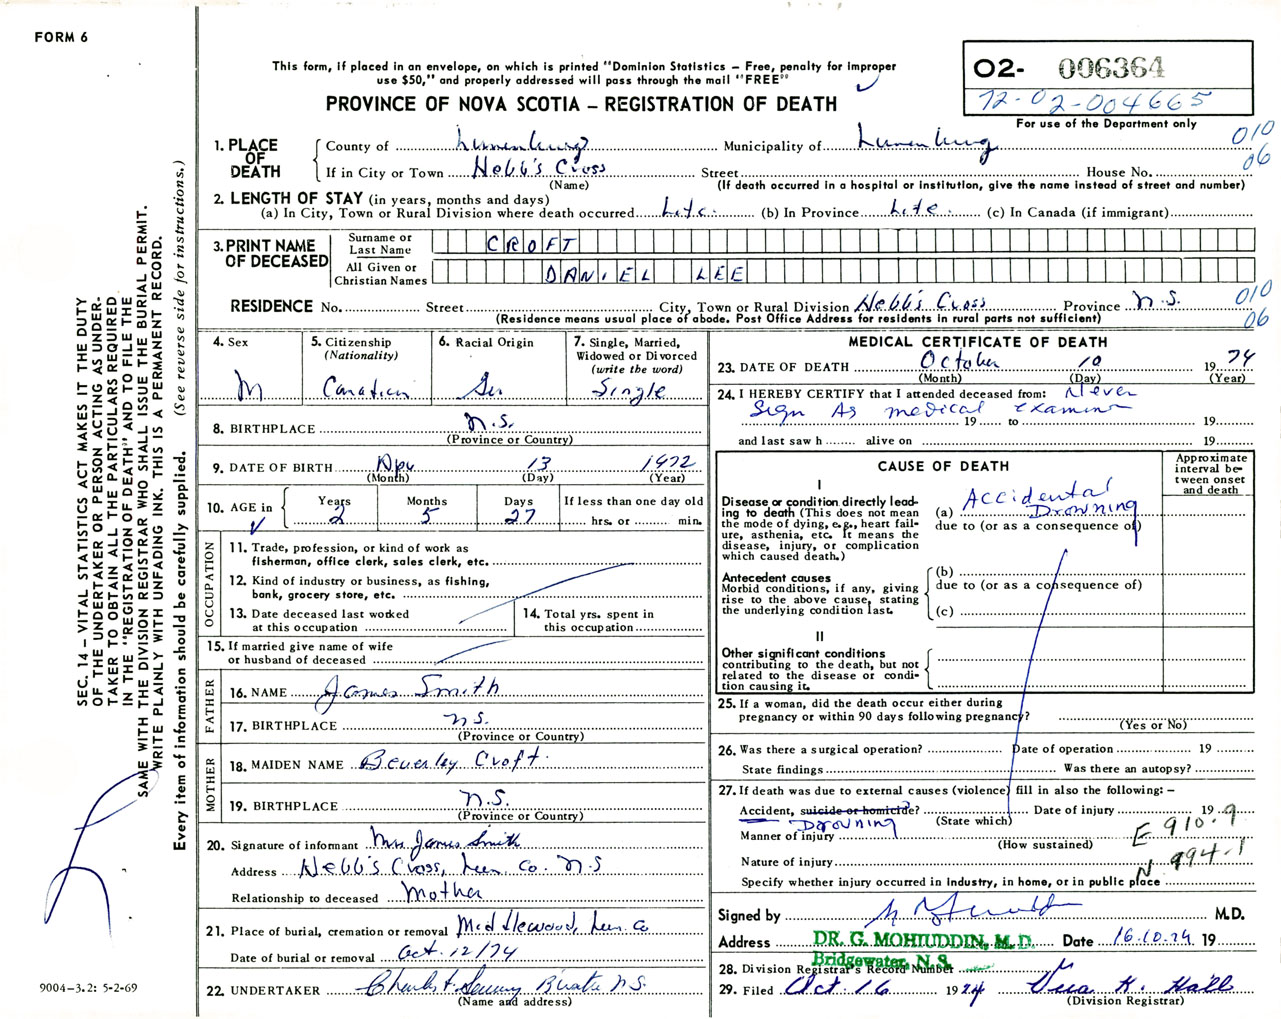 FORM 6
This form, if placed in an envelope, on which is printed "Dominion Statistics – Free, penalty for improper
use $50," and properly addressed will pass through the mail "FREE"
PROVINCE OF NOVA SCOTIA – REGISTRATION OF DEATH
O2- 006364
72-02-004665
For use of the Department only
010
06
1. PLACE OF DEATH
County of Lunenburg Municipality of Lunenburg
If in City or Town Hebb's Cross Street House No.
(Name) (If death occurred in a hospital or institution, give the name instead of street and number)
2. LENGTH OF STAY (in years, months and days)
(a) In City, Town or Rural Division where death occurred Life (b) In Province Life (c) In Canada (if immigrant)
3. PRINT NAME OF DECEASED
Surname or Last Name CROFT
All Given or Christian Names DANIEL LEE
RESIDENCE No. Street City, Town or Rural Division Hebb's Cross Province N.S.
(Residence means usual place of abode. Post Office Address for residents in rural parts not sufficient)
010
06
4. Sex M
5. Citizenship (Nationality) Canadian
6. Racial Origin Ger
7. Single, Married, Widowed or Divorced (write the word) Single
8. BIRTHPLACE N.S.
(Province or Country)
9. DATE OF BIRTH Apr 13 1972
(Month) (Day) (Year)
10. AGE in Years 2 Months 5 Days 27 If less than one day old hrs. or min.
OCCUPATION
11. Trade, profession, or kind of work as
fisherman, office clerk, sales clerk, etc.
12. Kind of industry or business, as fishing,
bank, grocery store, etc.
13. Date deceased last worked
at this occupation
14. Total yrs. spent in
this occupation
15. If married give name of wife
or husband of deceased
FATHER
16. NAME James Smith
17. BIRTHPLACE N.S.
(Province or Country)
MOTHER
18. MAIDEN NAME Beverley Croft
19. BIRTHPLACE N.S.
(Province or Country)
20. Signature of informant Mrs James Smith
Address Hebb's Cross, Lun. Co. N.S
Relationship to deceased Mother
21. Place of burial, cremation or removal Middlewood, Lun. Co
Date of burial or removal Oct. 12/74
22. UNDERTAKER Charles N.S.
(Name and address)
MEDICAL CERTIFICATE OF DEATH
23. DATE OF DEATH October 10 1974
(Month) (Day) (Year)
24. I HEREBY CERTIFY that I attended deceased from: Never
Sign As medical examiner
19 to 19
and last saw h alive on 19
CAUSE OF DEATH
Approximate interval between onset and death
I
Disease or condition directly leading to death (This does not mean the mode of dying, e.g., heart failure, asthenia, etc. It means the disease, injury, or complication which caused death.)
(a) Accidental Drowning
due to (or as a consequence of)
Antecedent causes
Morbid conditions, if any, giving rise to the above cause, stating the underlying condition last.
(b)
due to (or as a consequence of)
(c)
II
Other significant conditions
contributing to the death, but not related to the disease or condition causing it.
25. If a woman, did the death occur either during
pregnancy or within 90 days following pregnancy?
(Yes or No)
26. Was there a surgical operation? Date of operation 19
State findings Was there an autopsy?
27. If death was due to external causes (violence) fill in also the following: –
Accident, suicide or homicide? Date of injury 19
(State which)
Manner of injury Drowning
(How sustained)
E 910.9
Nature of injury
N 994.1
Specify whether injury occurred in industry, in home, or in public place
Signed by M.D.
Address DR. G. MOHIUDDIN, M.D. Date 16.10.74 19
Bridgewater, N.S.
28. Division Registrar's Record Number
29. Filed Oct. 16 1974 Vera K. Hall
(Division Registrar)
SEC. 14 – VITAL STATISTICS ACT MAKES IT THE DUTY
OF THE UNDERTAKER OR PERSON ACTING AS UNDER-
TAKER TO OBTAIN ALL THE PARTICULARS REQUIRED
IN THE "REGISTRATION OF DEATH" AND TO FILE THE
SAME WITH THE DIVISION REGISTRAR WHO SHALL ISSUE THE BURIAL PERMIT.
WRITE PLAINLY WITH UNFADING INK. THIS IS A PERMANENT RECORD.
Every item of information should be carefully supplied. (See reverse side for instructions.)
9004-3.2: 5-2-69